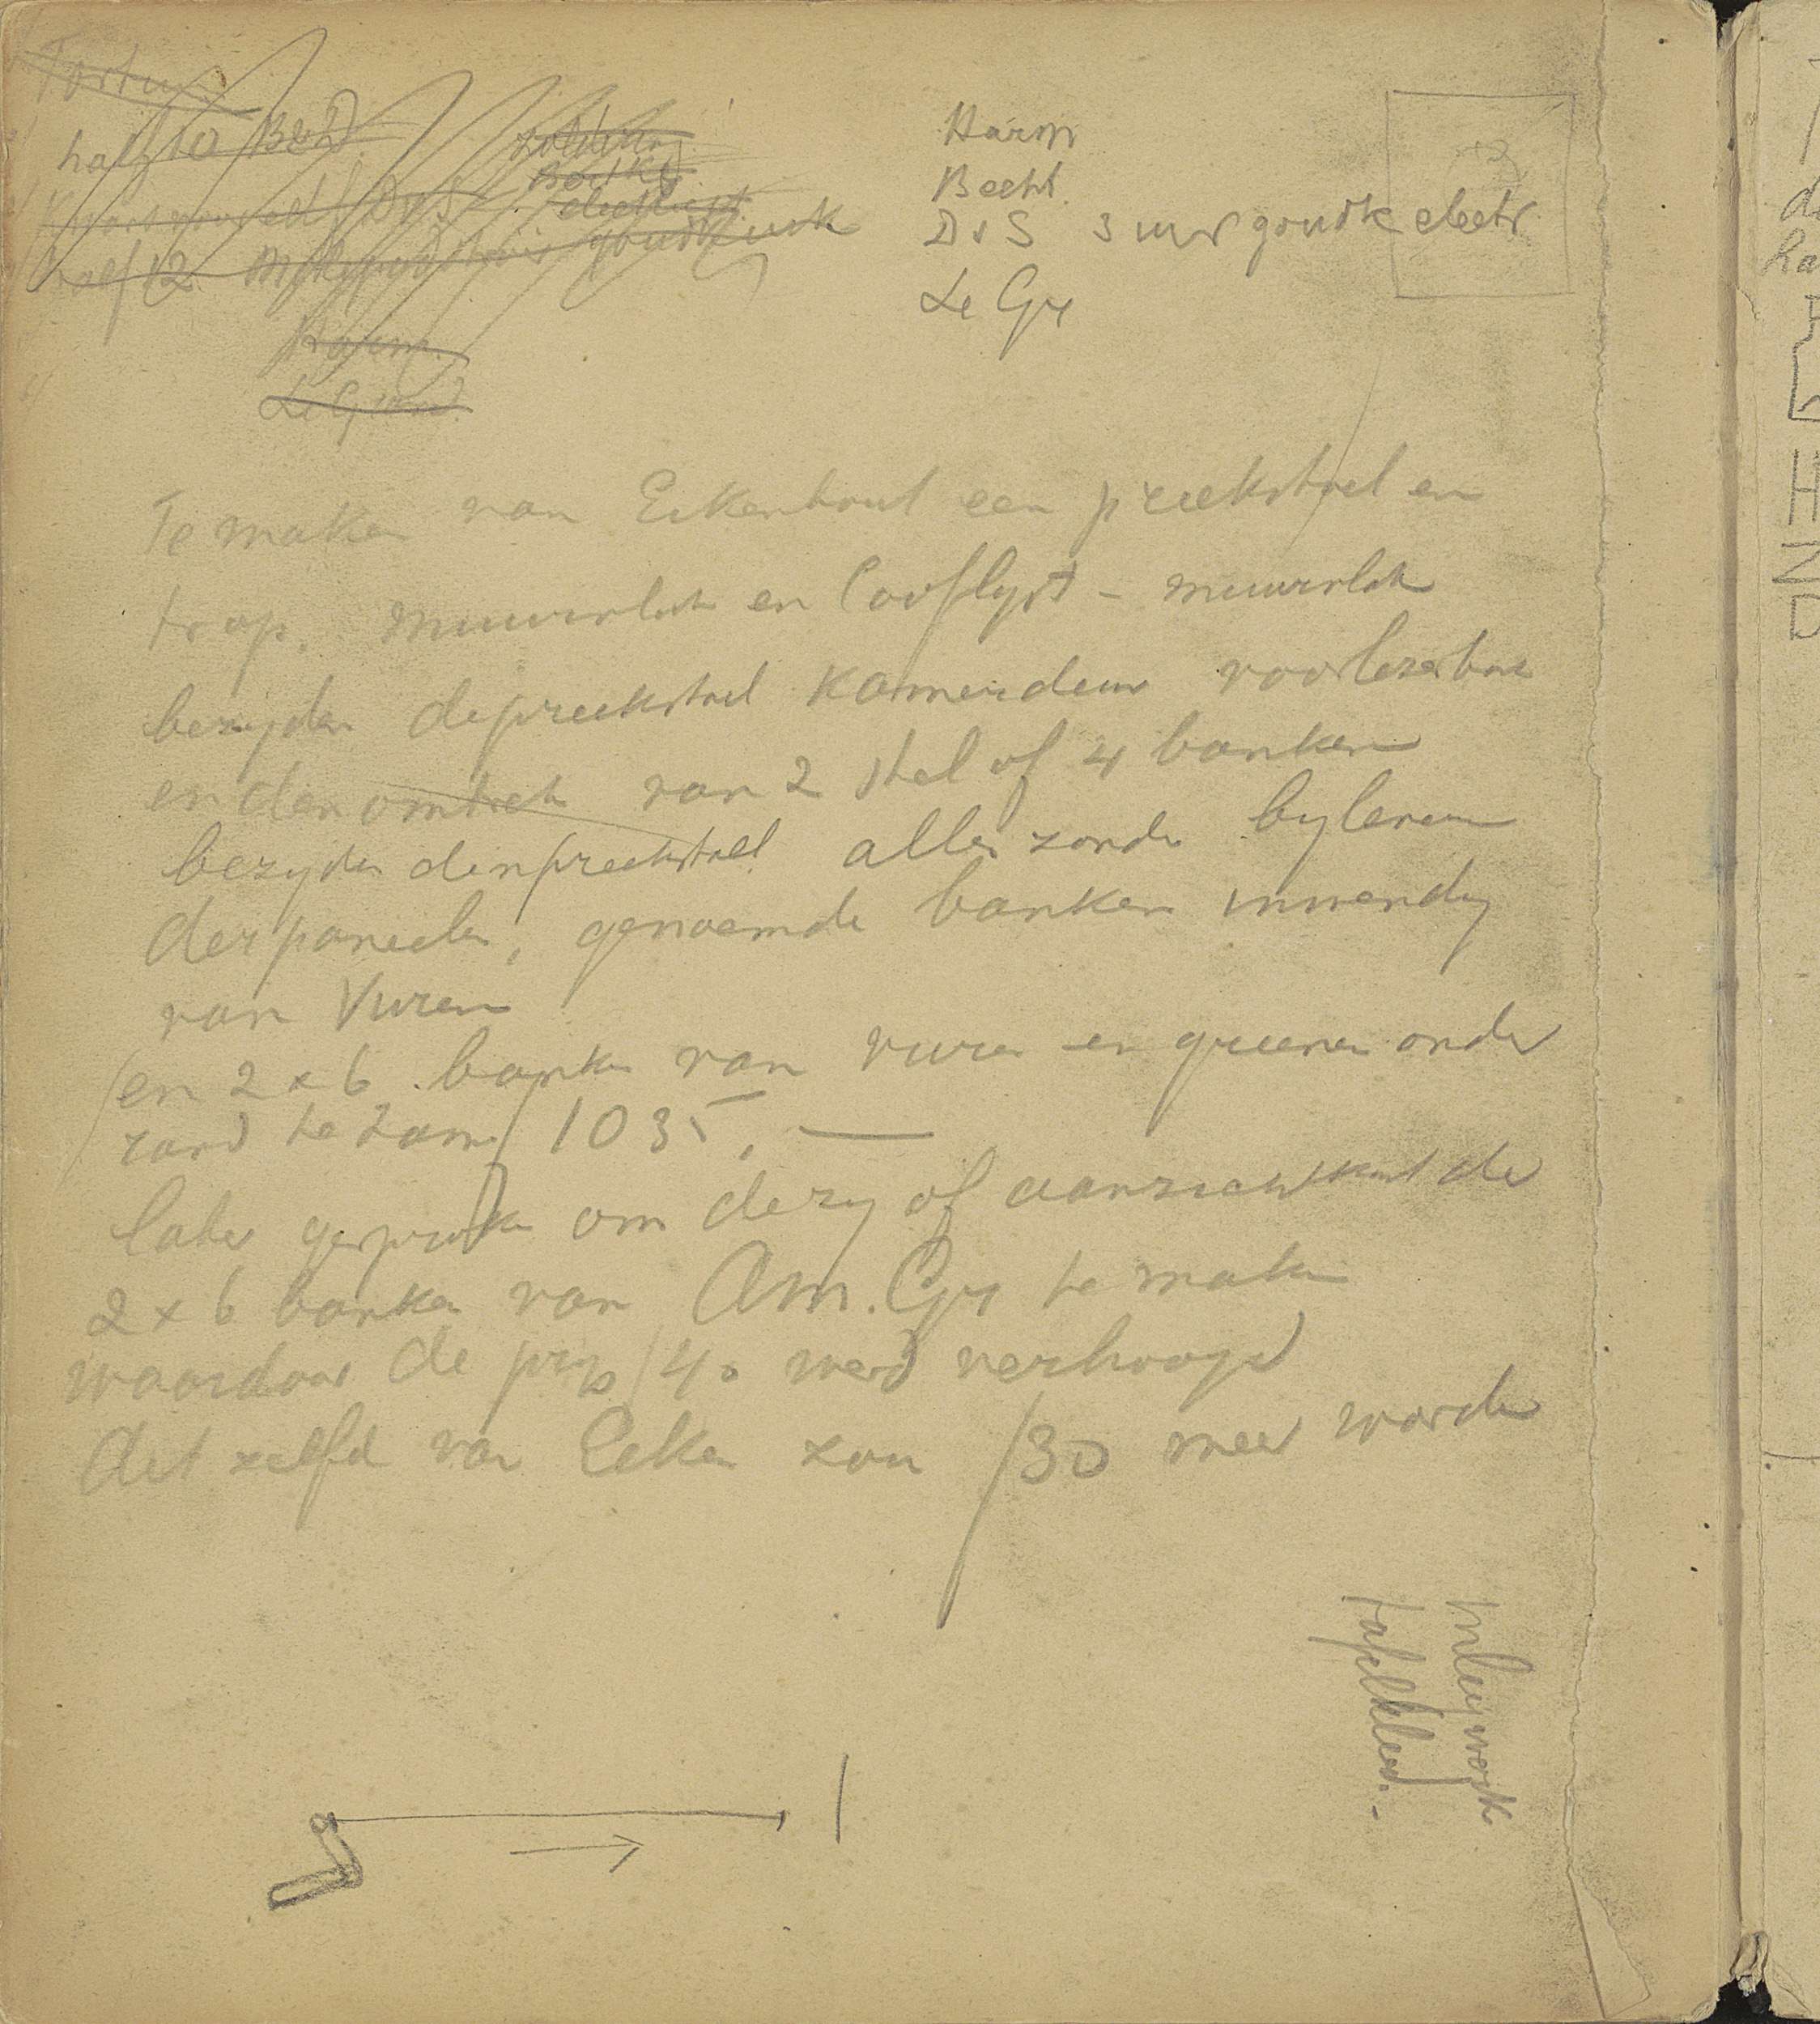 half 10 B&D
half 12
Harm
Harm
Becht.
D v S 3 uur goudk electr
Le Gr
Te maken van Eikenhout een preekstoel en
trap. muurvlak en Cooflyst - muurvlak
bezyden de preekstoel Kamerdeur voorlezerbank
en den omtrek van 2 stel of 4 banken
bezyden den preekstoel alles zonder byleveren
der paneelen, genoemde banken inwendig
van Vuren
en 2 x 6 banken van vuren en greenen onder
rand te zam f 1035, —
later gesproken om de zy of aanzichtkant der
2 x 6 banken van Am. Gr te maken
waardoor de prys f 40 werd verhoogd
Dit zelfd van Eiken zou f 30 meer worden
Inlegwerk
tafelkleed. -